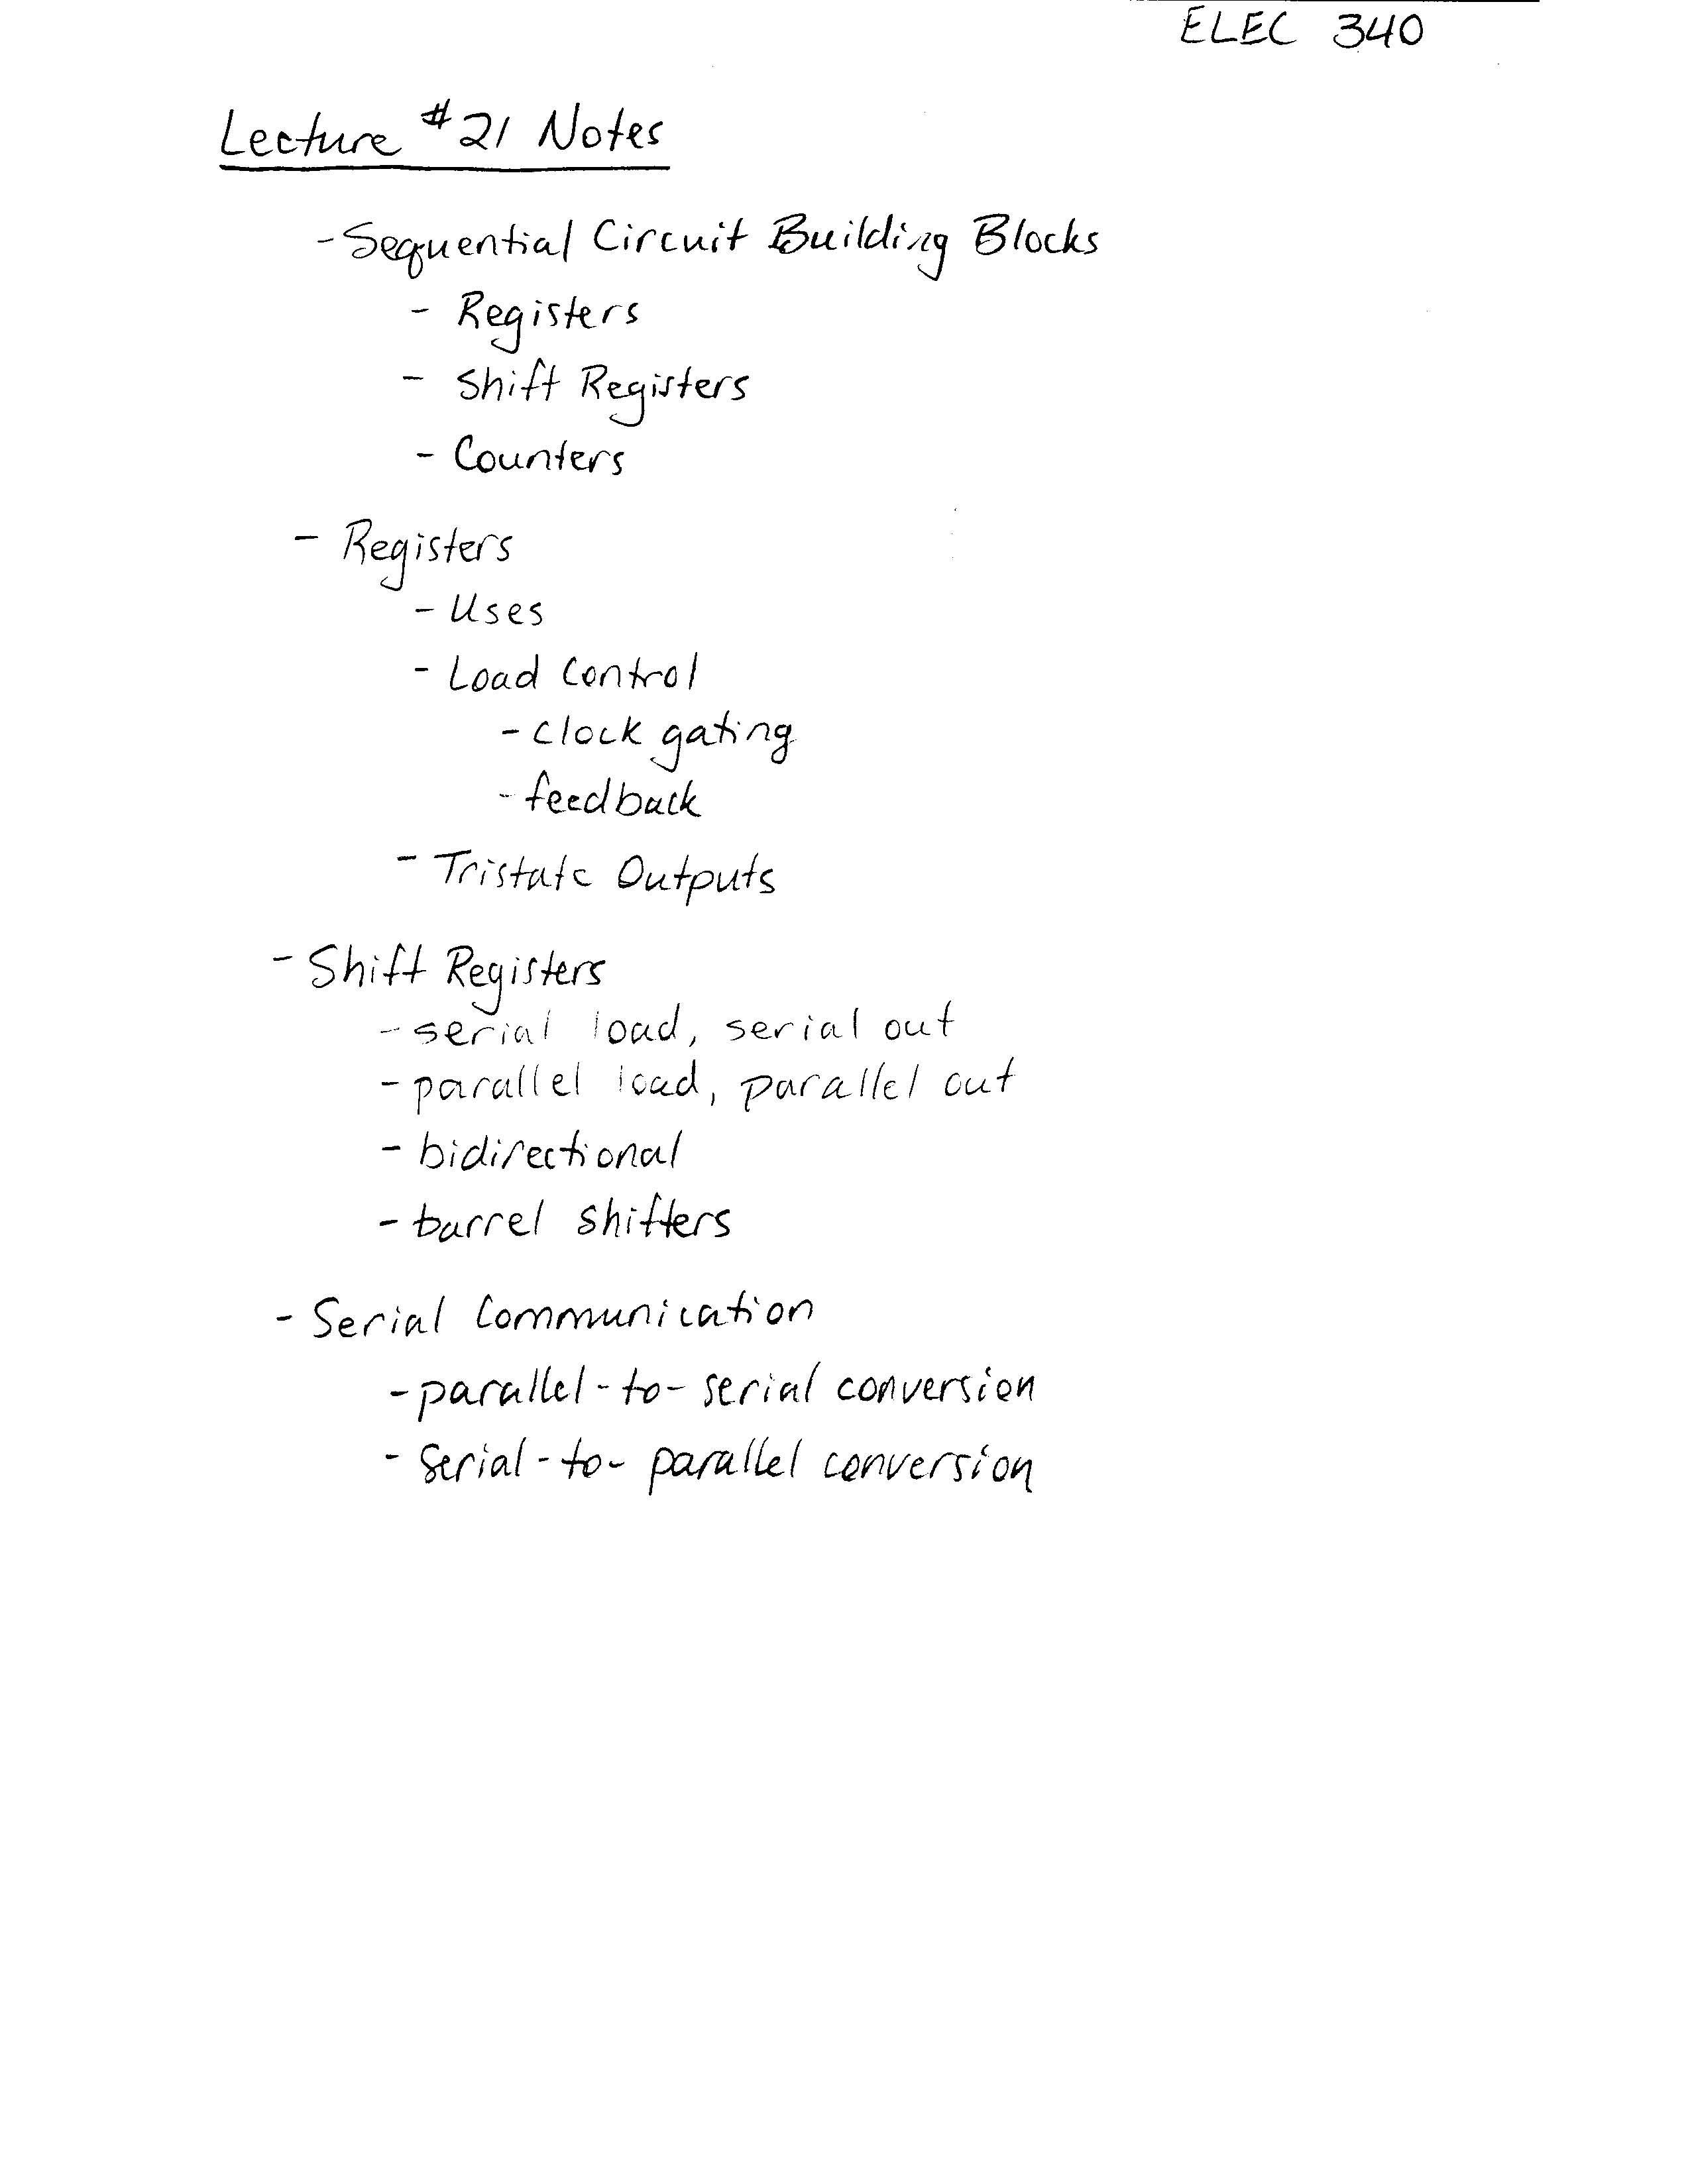 ELEC 340
Lecture #21 Notes
- Sequential Circuit Building Blocks
- Registers
- Shift Registers
- Counters
- Registers
- Uses
- Load Control
- clock gating
- feedback
- Tristate Outputs
- Shift Registers
- serial load, serial out
- parallel load, parallel out
- bidirectional
- barrel shifters
- Serial Communication
- parallel-to-serial conversion
- Serial-to-parallel conversion